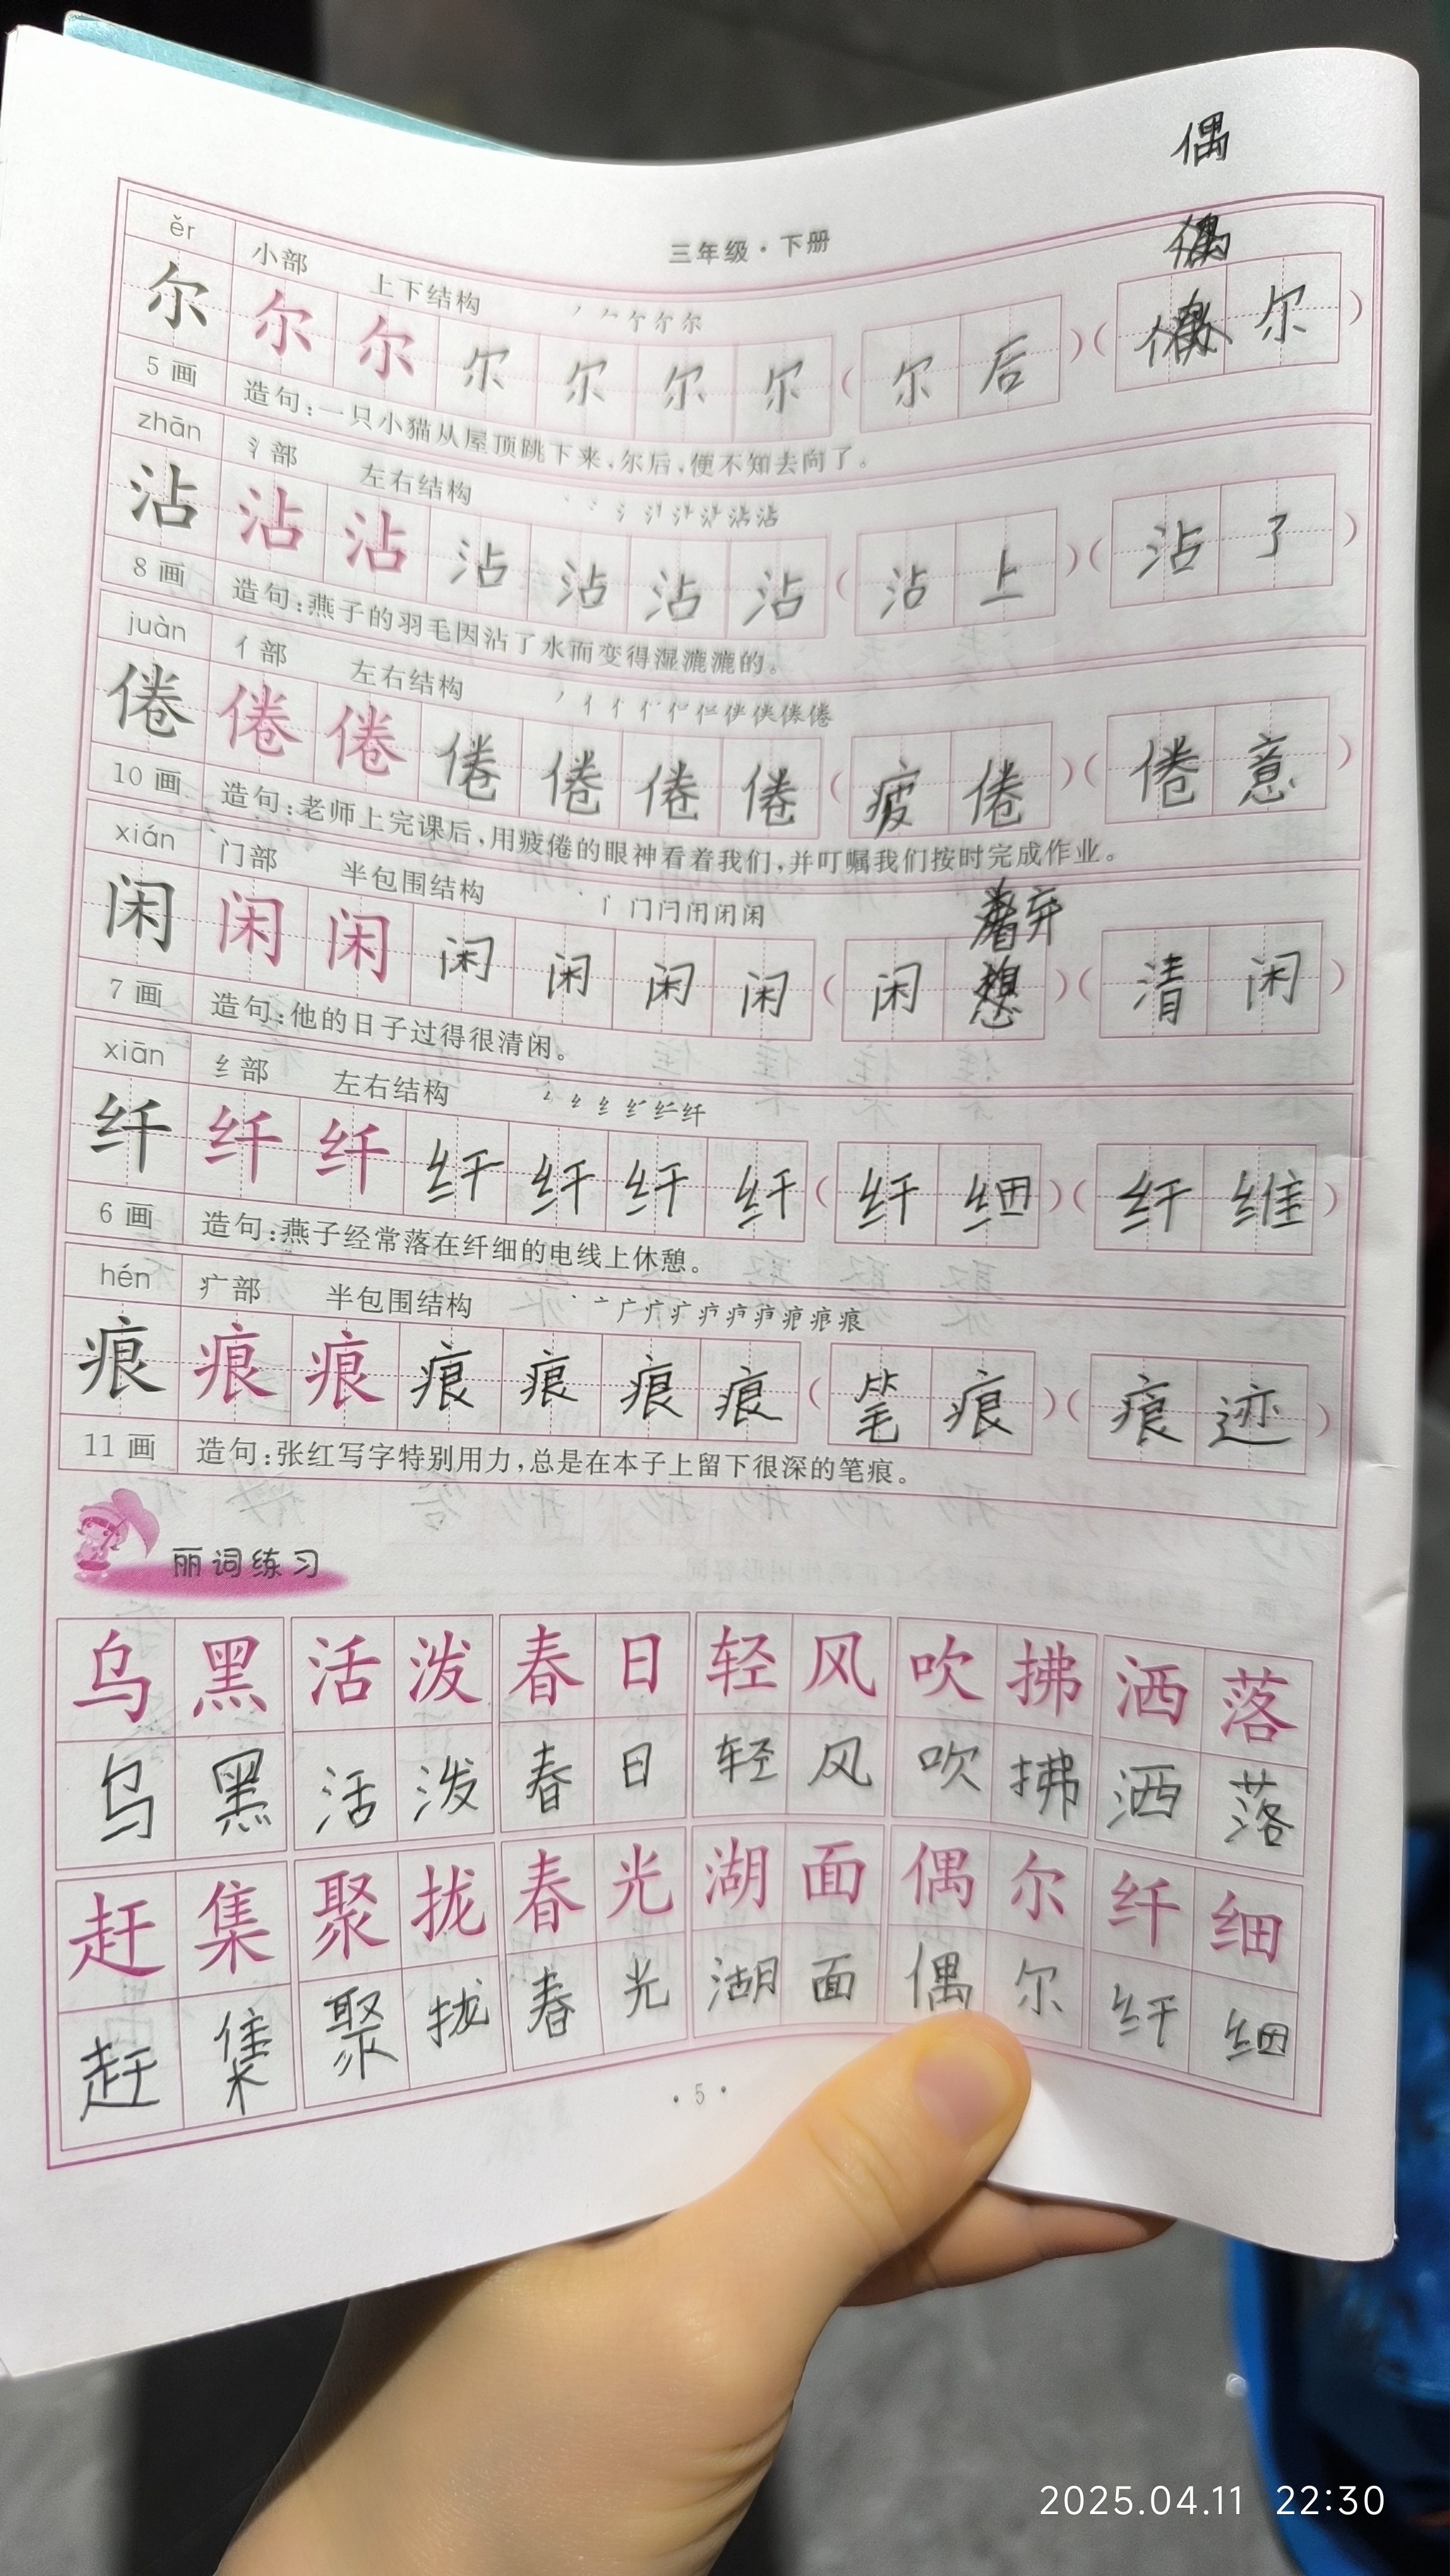 偶
三年级·下册
ěr 小部 上下结构
尔 尔 尔 尔 尔 尔 尔 (尔后)(尔)
5画 造句:一只小猫从屋顶跳下来,尔后,便不知去向了。
zhān 氵部 左右结构
沾 沾 沾 沾 沾 沾 沾 (沾上)(沾了)
8画 造句:燕子的羽毛因沾了水而变得湿漉漉的。
juàn 亻部 左右结构
倦 倦 倦 倦 倦 倦 倦 (疲倦)(倦意)
10画 造句:老师上完课后,用疲倦的眼神看着我们,并叮嘱我们按时完成作业。
xián 门部 半包围结构
闲 闲 闲 闲 闲 闲 闲 (闲)(清闲)
7画 造句:他的日子过得很清闲。
xiān 纟部 左右结构
纤 纤 纤 纤 纤 纤 纤 (纤细)(纤维)
6画 造句:燕子经常落在纤细的电线上休憩。
hén 疒部 半包围结构
痕 痕 痕 痕 痕 痕 痕 (笔痕)(痕迹)
11画 造句:张红写字特别用力,总是在本子上留下很深的笔痕。
丽词练习
乌黑 活泼 春日 轻风 吹拂 洒落
乌黑 活泼 春日 轻风 吹拂 洒落
赶集 聚拢 春光 湖面 偶尔 纤细
赶集 聚拢 春光 湖面 偶尔 纤细
·5·
2025.04.11 22:30